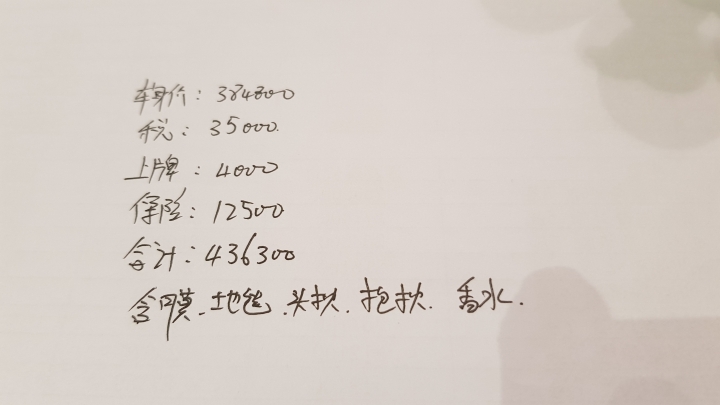 车身价：384800
税：35000.
上牌：4000
保险：12500
合计：436300
含膜.地毯.头枕.抱枕.香水.